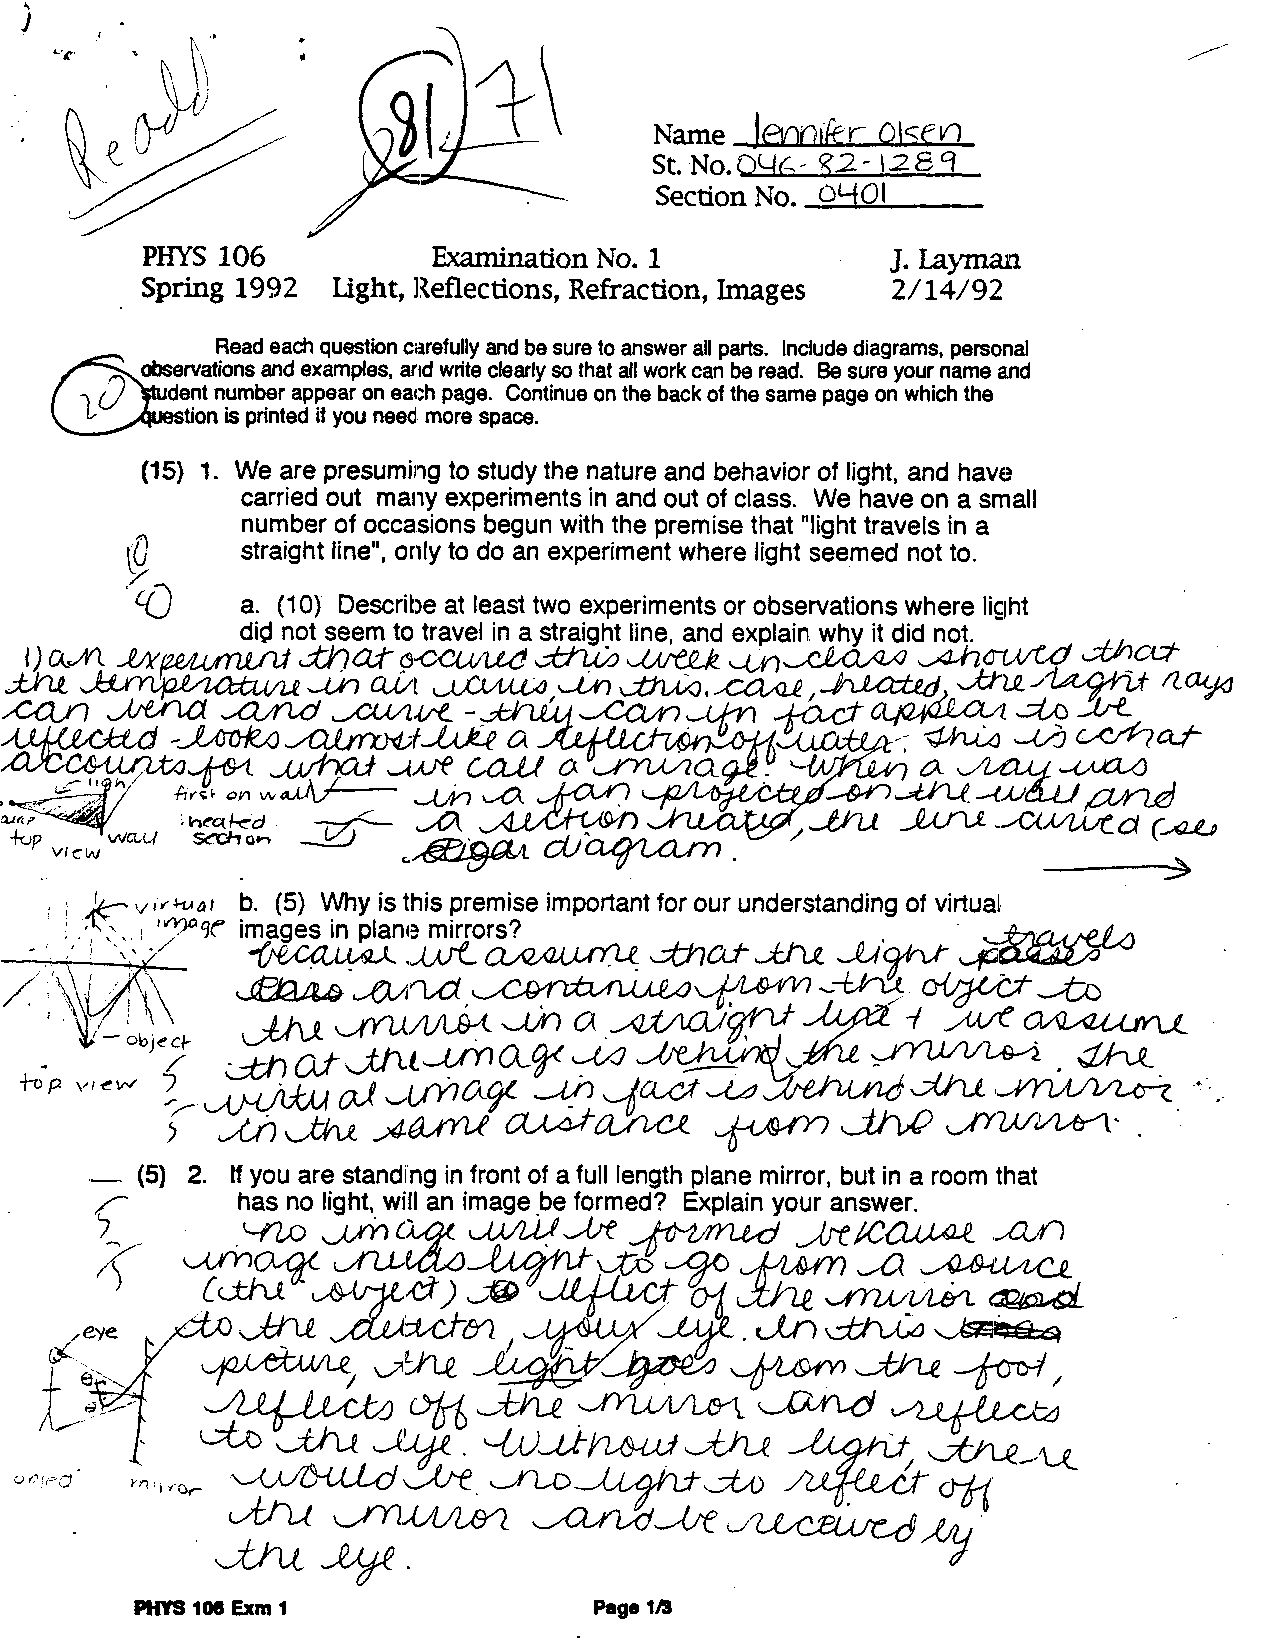 Readd
81
71
Name Jennifer Olsen
St. No. 046-82-1289
Section No. 0401
PHYS 106 Examination No. 1 J. Layman
Spring 1992 Light, Reflections, Refraction, Images 2/14/92
Read each question carefully and be sure to answer all parts. Include diagrams, personal
observations and examples, and write clearly so that all work can be read. Be sure your name and
student number appear on each page. Continue on the back of the same page on which the
question is printed if you need more space.
20
(15) 1. We are presuming to study the nature and behavior of light, and have
carried out many experiments in and out of class. We have on a small
number of occasions begun with the premise that "light travels in a
straight line", only to do an experiment where light seemed not to.
10
a. (10) Describe at least two experiments or observations where light
did not seem to travel in a straight line, and explain why it did not.
1) an experiment that occured this week in class showed that
the temperature in air varies, in this case, heated, the light rays
can bend and curve - they can in fact appear to be
reflected - looks almost like a reflection off water. This is what
accounts for what we call a "mirage." When a ray was
in a fan projected on the wall and
a section heated, the line curved (see
diagram.
light
first on wall
heated
section
top
view
wall
b. (5) Why is this premise important for our understanding of virtual
images in plane mirrors?
virtual
image
object
top view
because we assume that the light travels
and continues from the object to
the mirror in a straight line + we assume
that the image is behind the mirror. The
virtual image in fact is behind the mirror
in the same distance from the mirror.
5
(5) 2. If you are standing in front of a full length plane mirror, but in a room that
has no light, will an image be formed? Explain your answer.
5
no image will be formed because an
image needs light to go from a source
(the object) to reflect of the mirror
to the detector, your eye. In this
picture, the light goes from the foot,
reflects off the mirror and reflects
to the eye. Without the light, there
would be no light to reflect off
the mirror and be received by
the eye.
eye
mirror
PHYS 106 Exm 1 Page 1/3